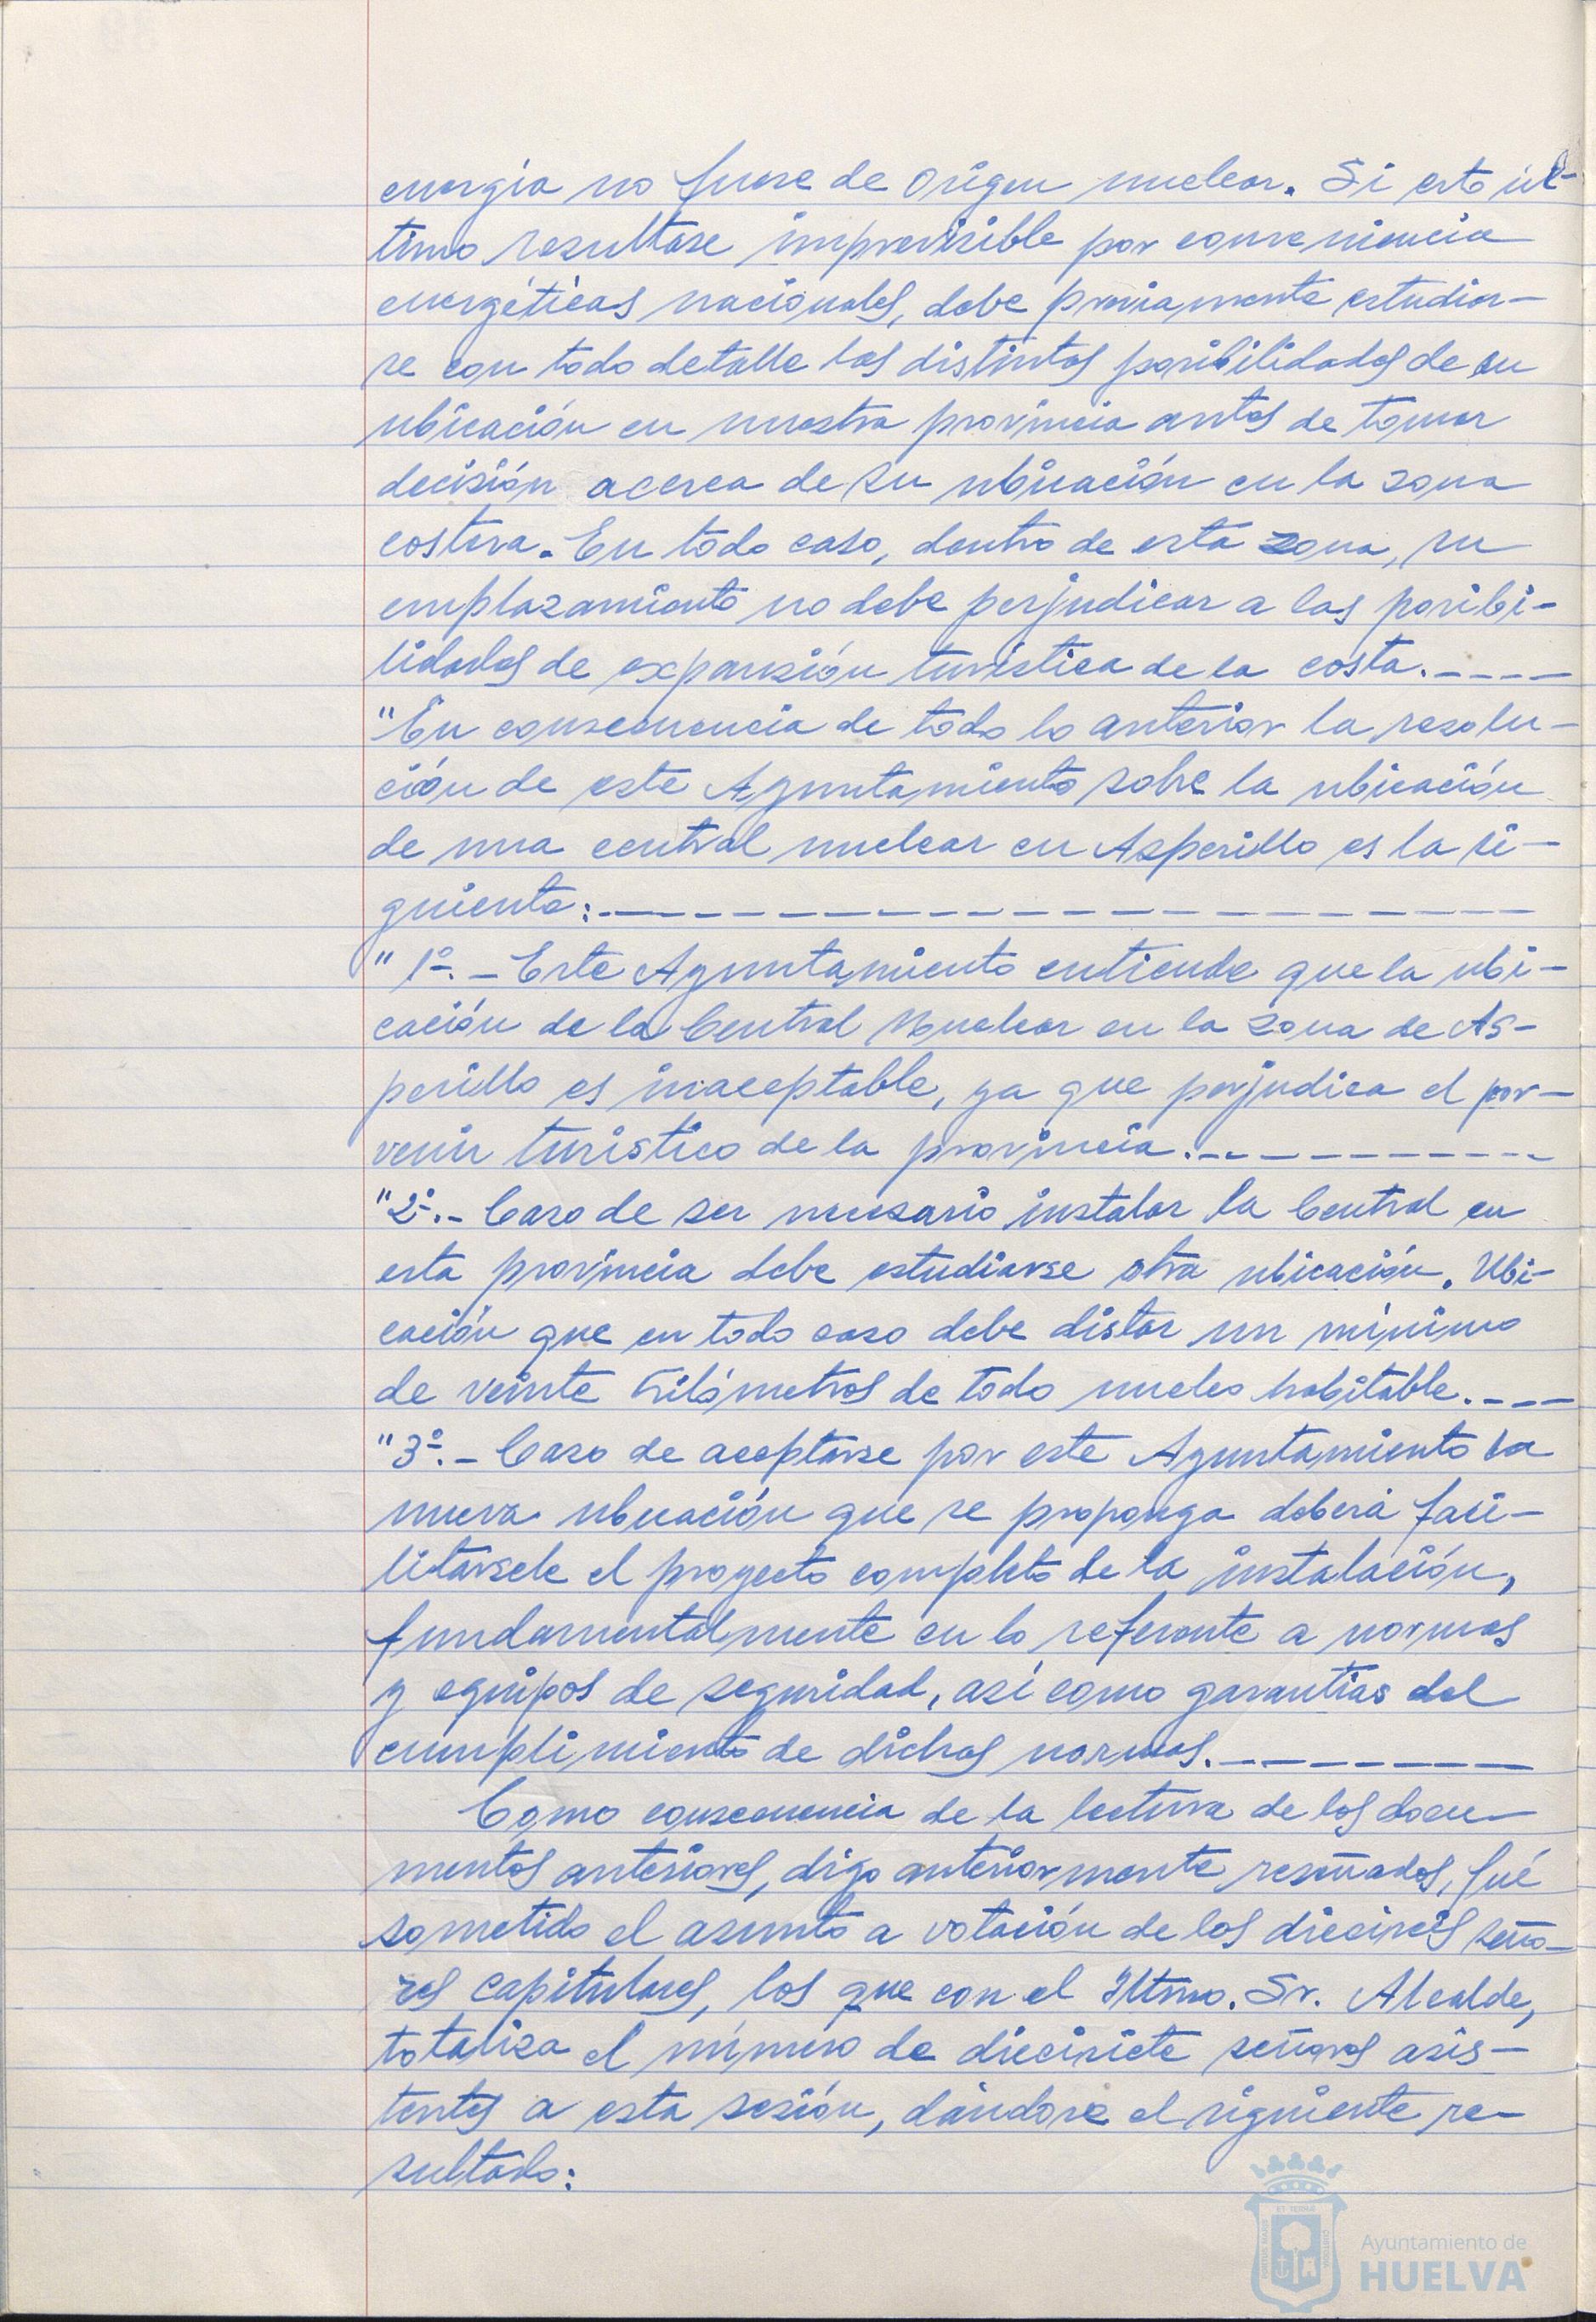 energía no fuese de origen nuclear. Si esto úl-
timo resultase imprevisible por conveniencia
energéticas nacionales, debe previamente estudiar-
se con todo detalle las distintas posibilidades de su
ubicación en nuestra provincia antes de tomar
decisión acerca de su ubicación en la zona
costera. En todo caso, dentro de esta zona, su
emplazamiento no debe perjudicar a las posibi-
lidades de expansión turística de la costa.----
"En consecuencia de todo lo anterior la resolu-
ción de este Ayuntamiento sobre la ubicación
de una central nuclear en Asperillo es la si-
guiente:-----------------
"1º.- Este Ayuntamiento entiende que la ubi-
cación de la Central Nuclear en la zona de As-
perillo es inaceptable, ya que perjudica el por-
venir turístico de la provincia.----------
"2º.- Caso de ser necesario instalar la Central en
esta provincia debe estudiarse otra ubicación. Ubi-
cación que en todo caso debe distar un mínimo
de veinte kilómetros de todo nucleo habitable.----
"3º.- Caso de aceptarse por este Ayuntamiento la
nueva ubicación que se proponga deberá faci-
litársele el proyecto completo de la instalación,
fundamentalmente en lo referente a normas
y equipos de seguridad, así como garantías del
cumplimiento de dichas normas.---------
Como consecuencia de la lectura de los docu-
mentos anteriores, digo anteriormente reseñados, fué
sometido el asunto a votación de los dieciseis seño-
res capitulares, los que con el Iltmo. Sr. Alcalde,
totaliza el número de diecisiete señores asis-
tentes a esta sesión, dándose el siguiente re-
sultado:
Ayuntamiento de
HUELVA